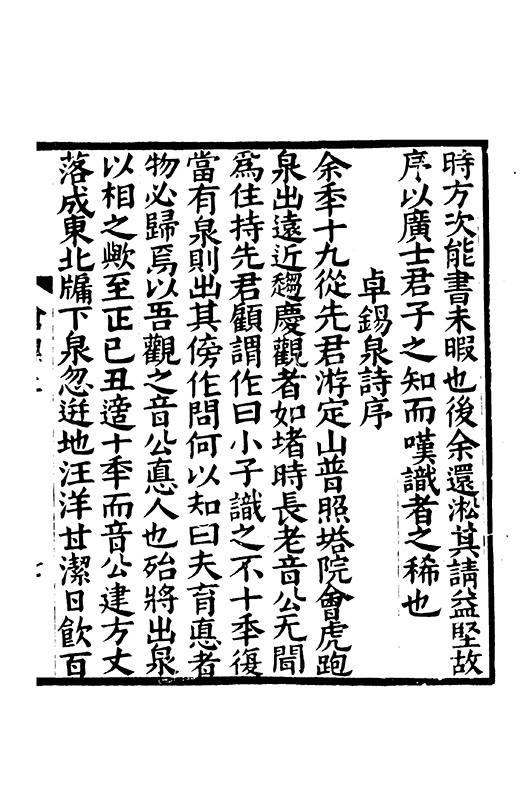 時方次能書未暇也後余還淞其請益堅故
序以廣士君子之知而嘆識者之稀也
卓錫泉詩序
余秊十九從先君游定山普照塔院會虎跑
泉出遠近趨慶觀者如堵時長老音公无間
爲住持先君顧謂作曰小子識之不十秊復
當有泉則出其傍作問何以知曰夫育悳者
物必歸焉以吾觀之音公悳人也殆將出泉
以相之歟至正己丑適十秊而音公建方丈
落成東北牖下泉忽迸地汪洋甘潔日飮百